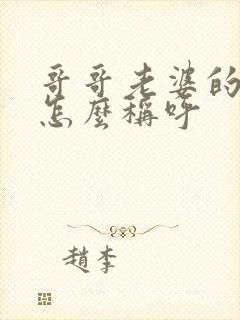 哥哥老婆的
怎麼稱呼
趙李